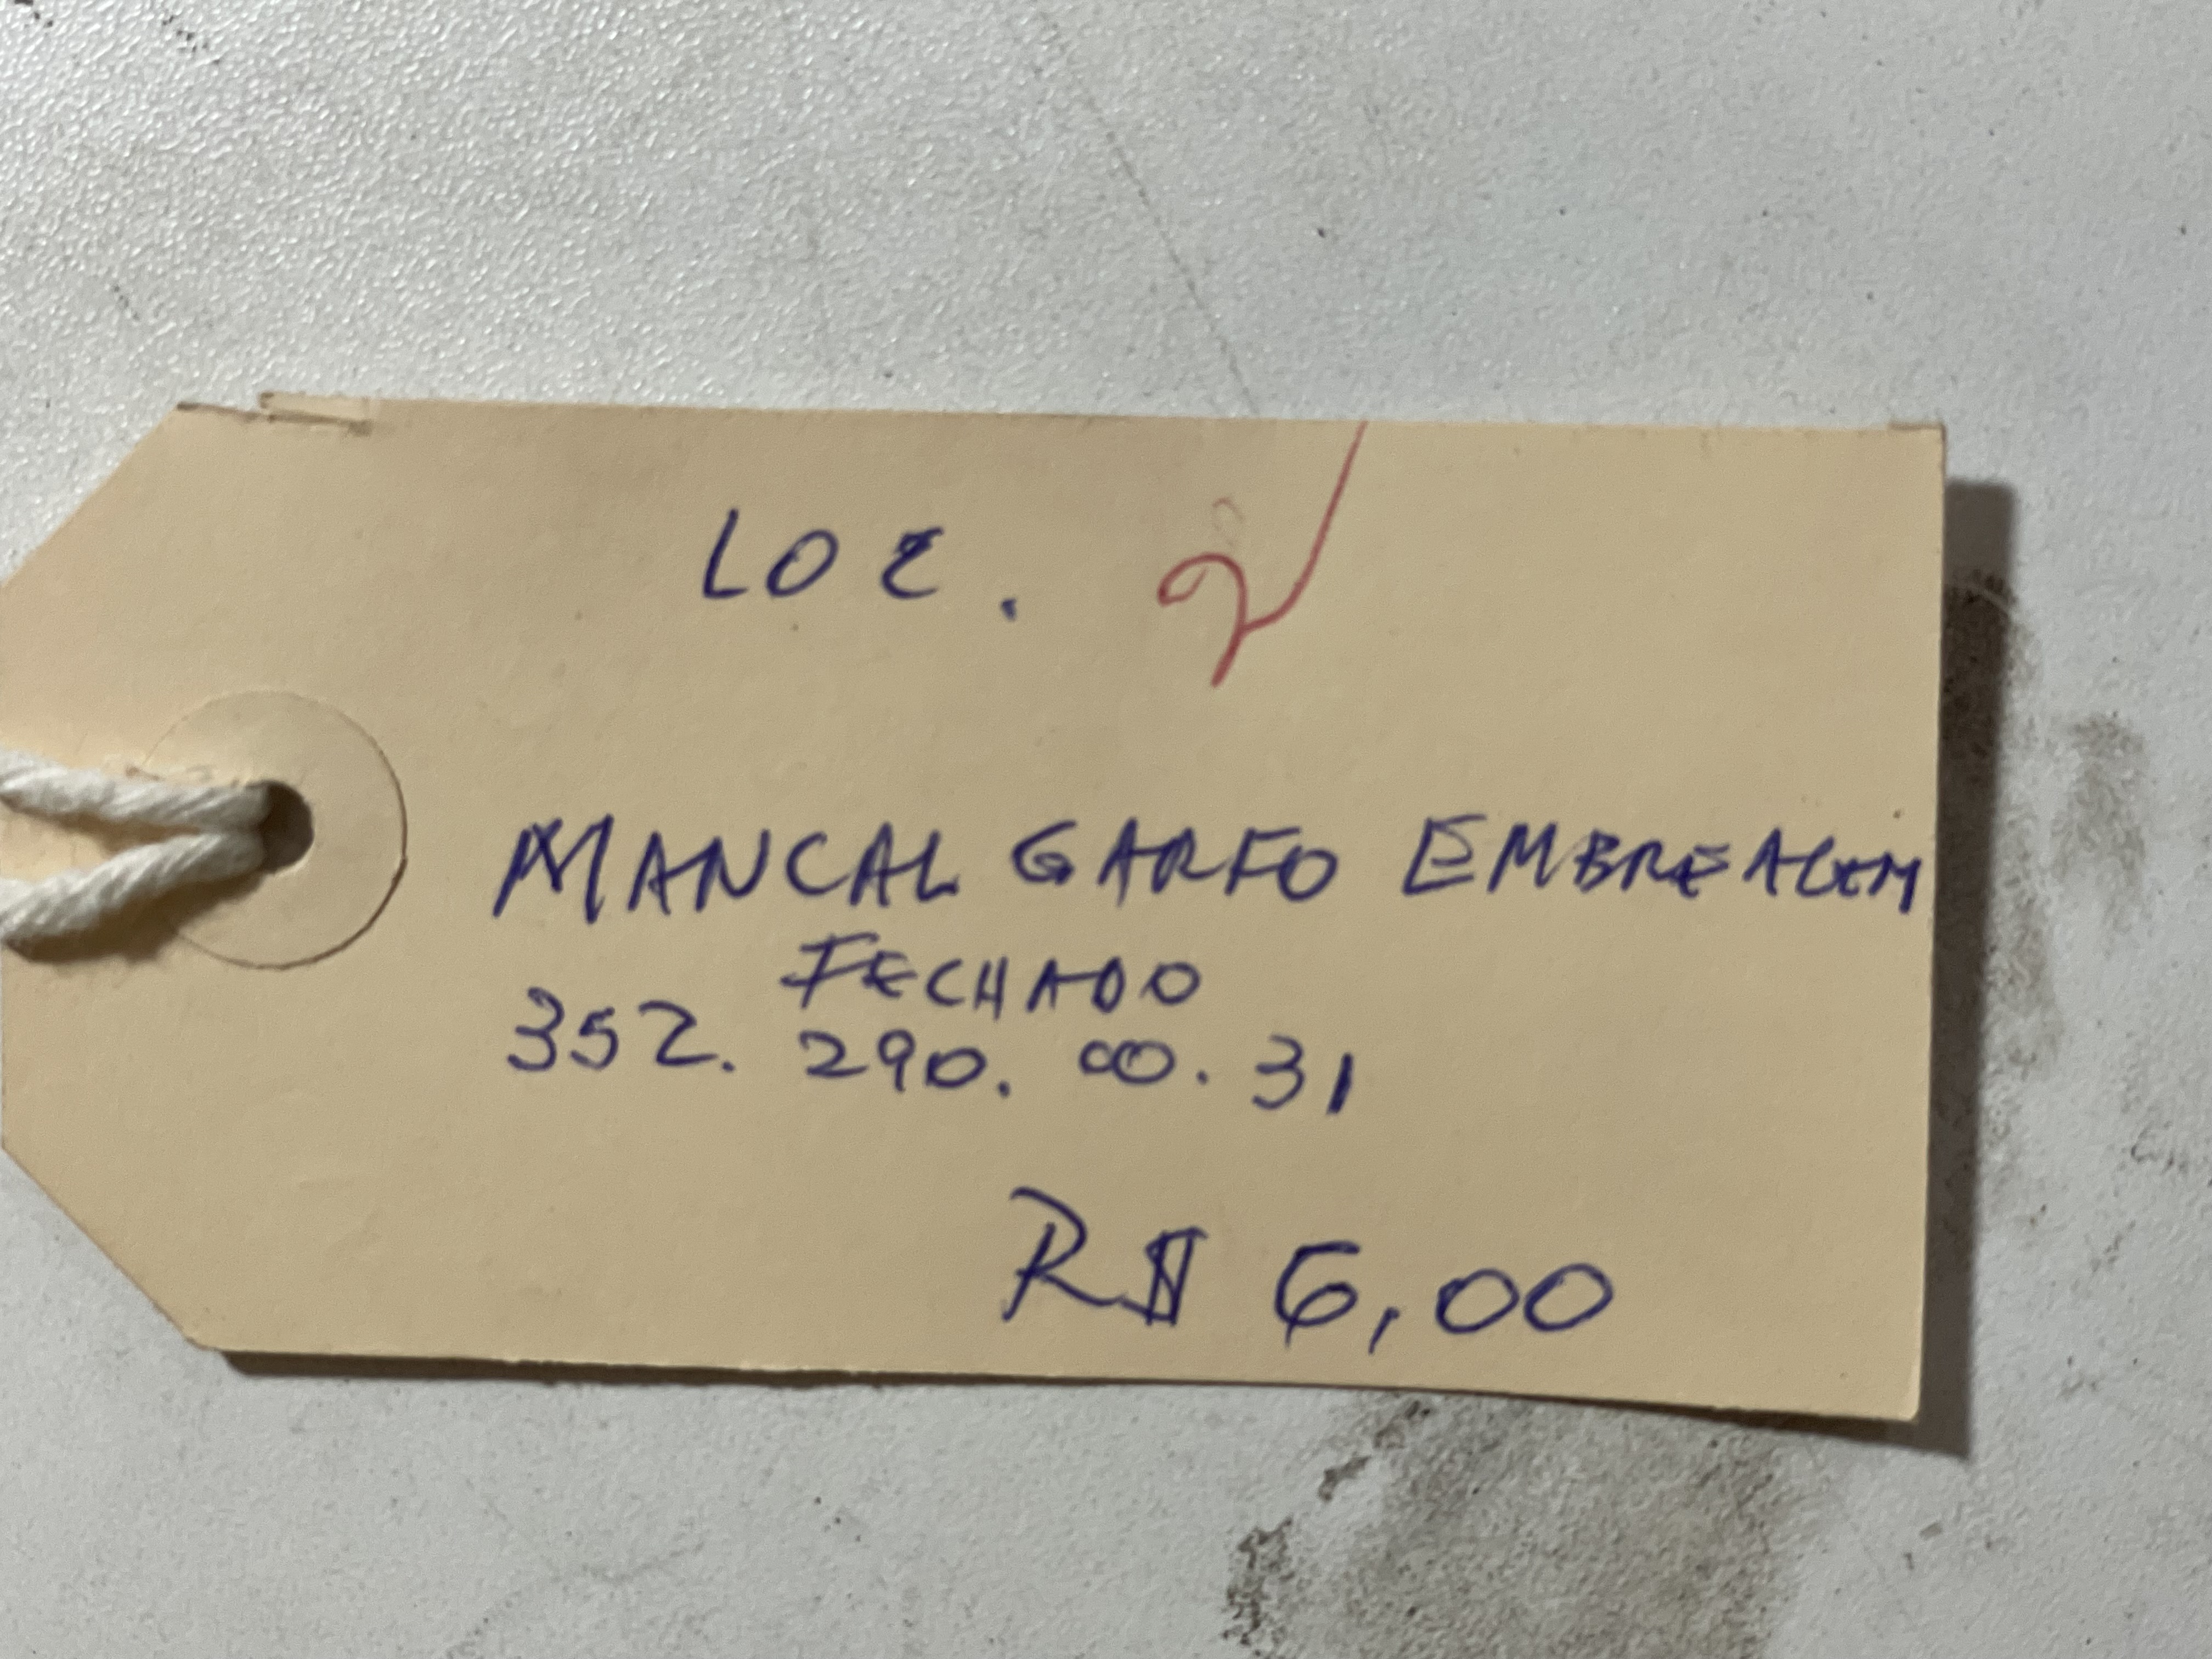 LOC.
MANCAL GARFO EMBREAGEM
FECHADO
352. 290. 00. 31
R$ 6,00